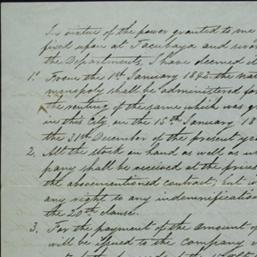 In virtue of the power granted to me
fixed upon at Tacubaya and
the Departments, I have deemed it
1. From the 1st January 1842 the
monopoly shall be administered for
the renting of the same which was
in this City on the 15th January 18
the 31st December of the present year
2. All the stock on hand as well as
pany shall be received at the prices
the abovementioned contract; but
any right to any indemnification
the 20th clause.
3. For the payment of the amount of
will be issued to the Company